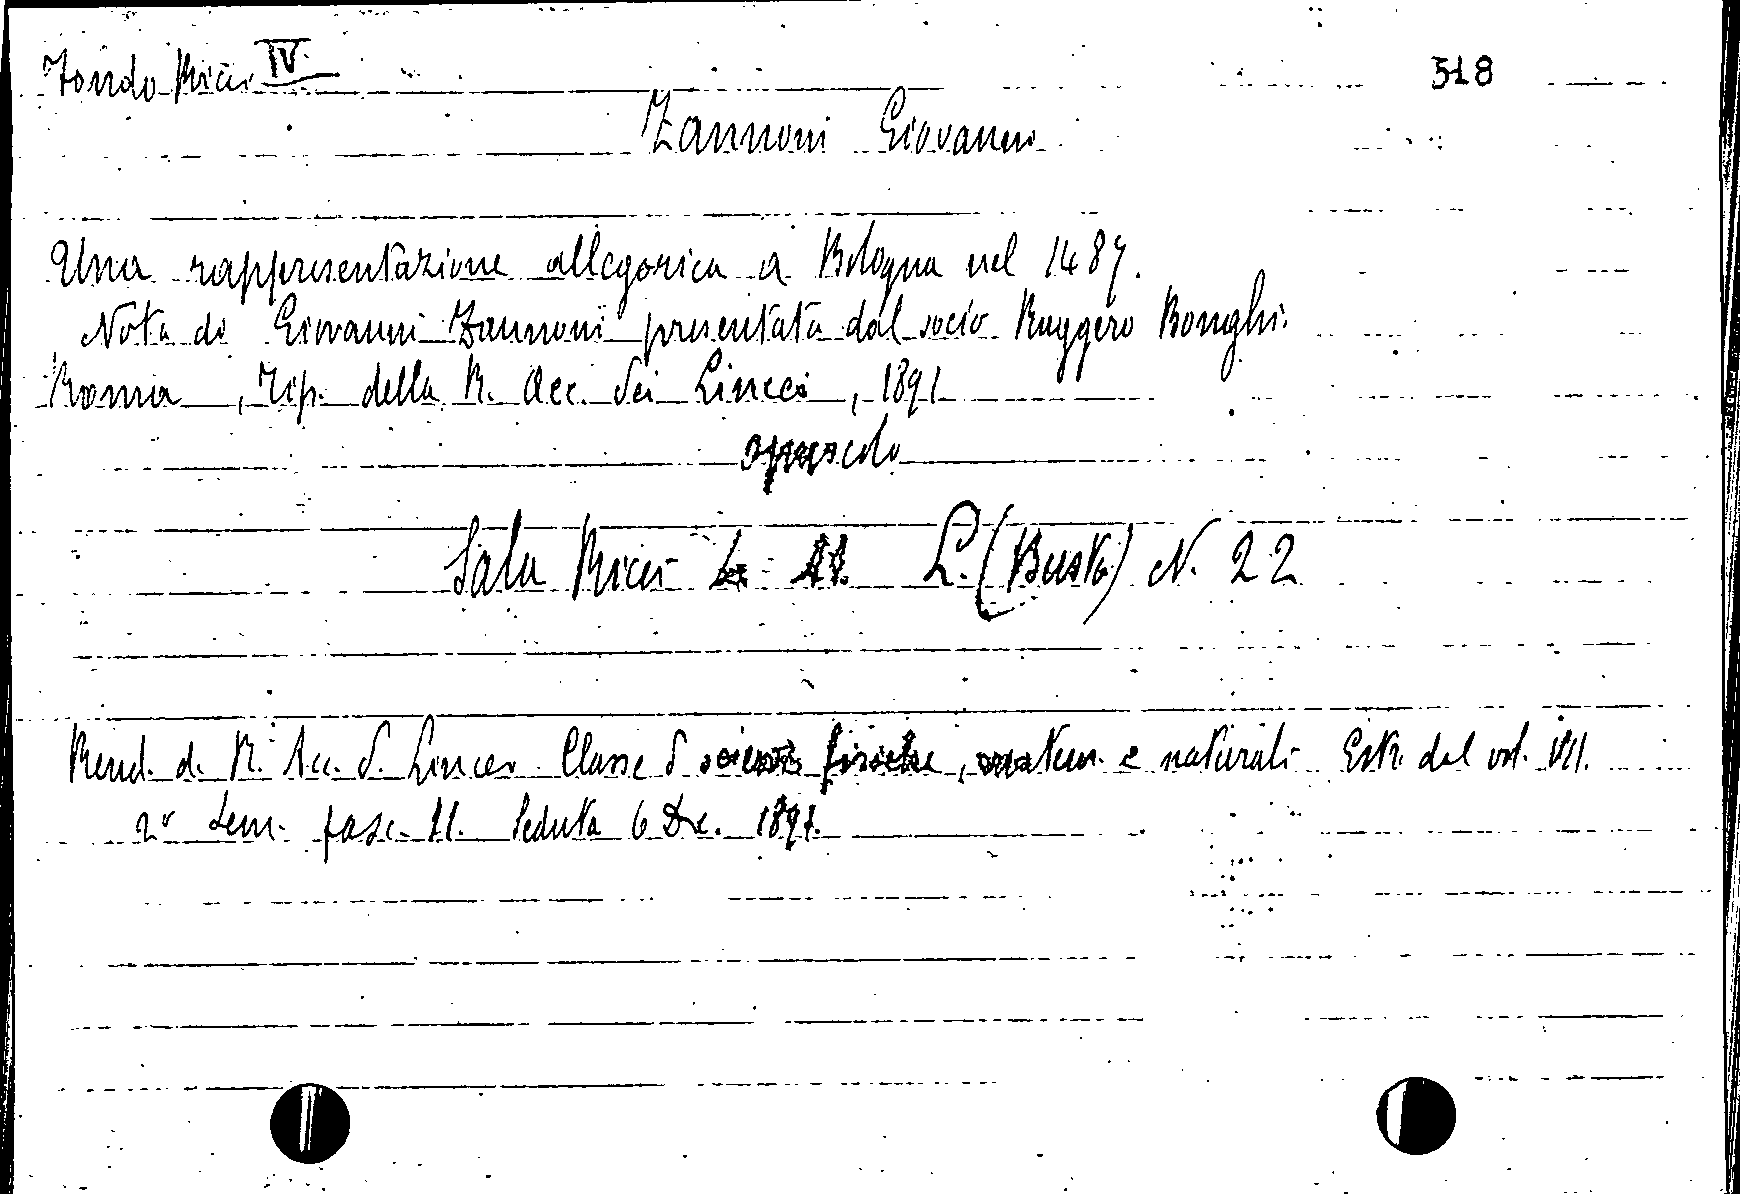 Fondo Ricci IV. 518
Zannoni Giovanni
Una rappresentazione allegorica a Bologna nel 1487.
Nota di Giovanni Zannoni presentata dal socio Ruggero Bonghi.
Roma, Tip. della R. Acc. dei Lincei, 1891
opuscolo
Sala Ricci L. (Busta) N. 22
Rend. d. R. Acc. d. Lincei Classe d scienze fisiche, matem. e naturali Estr. dal vol. VII.
2º sem. fasc. 11. Seduta 6 Dic. 1891.